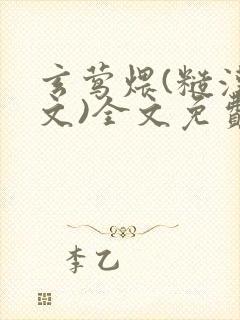 玄莺煨(糙汉
文)全文免费
李乙